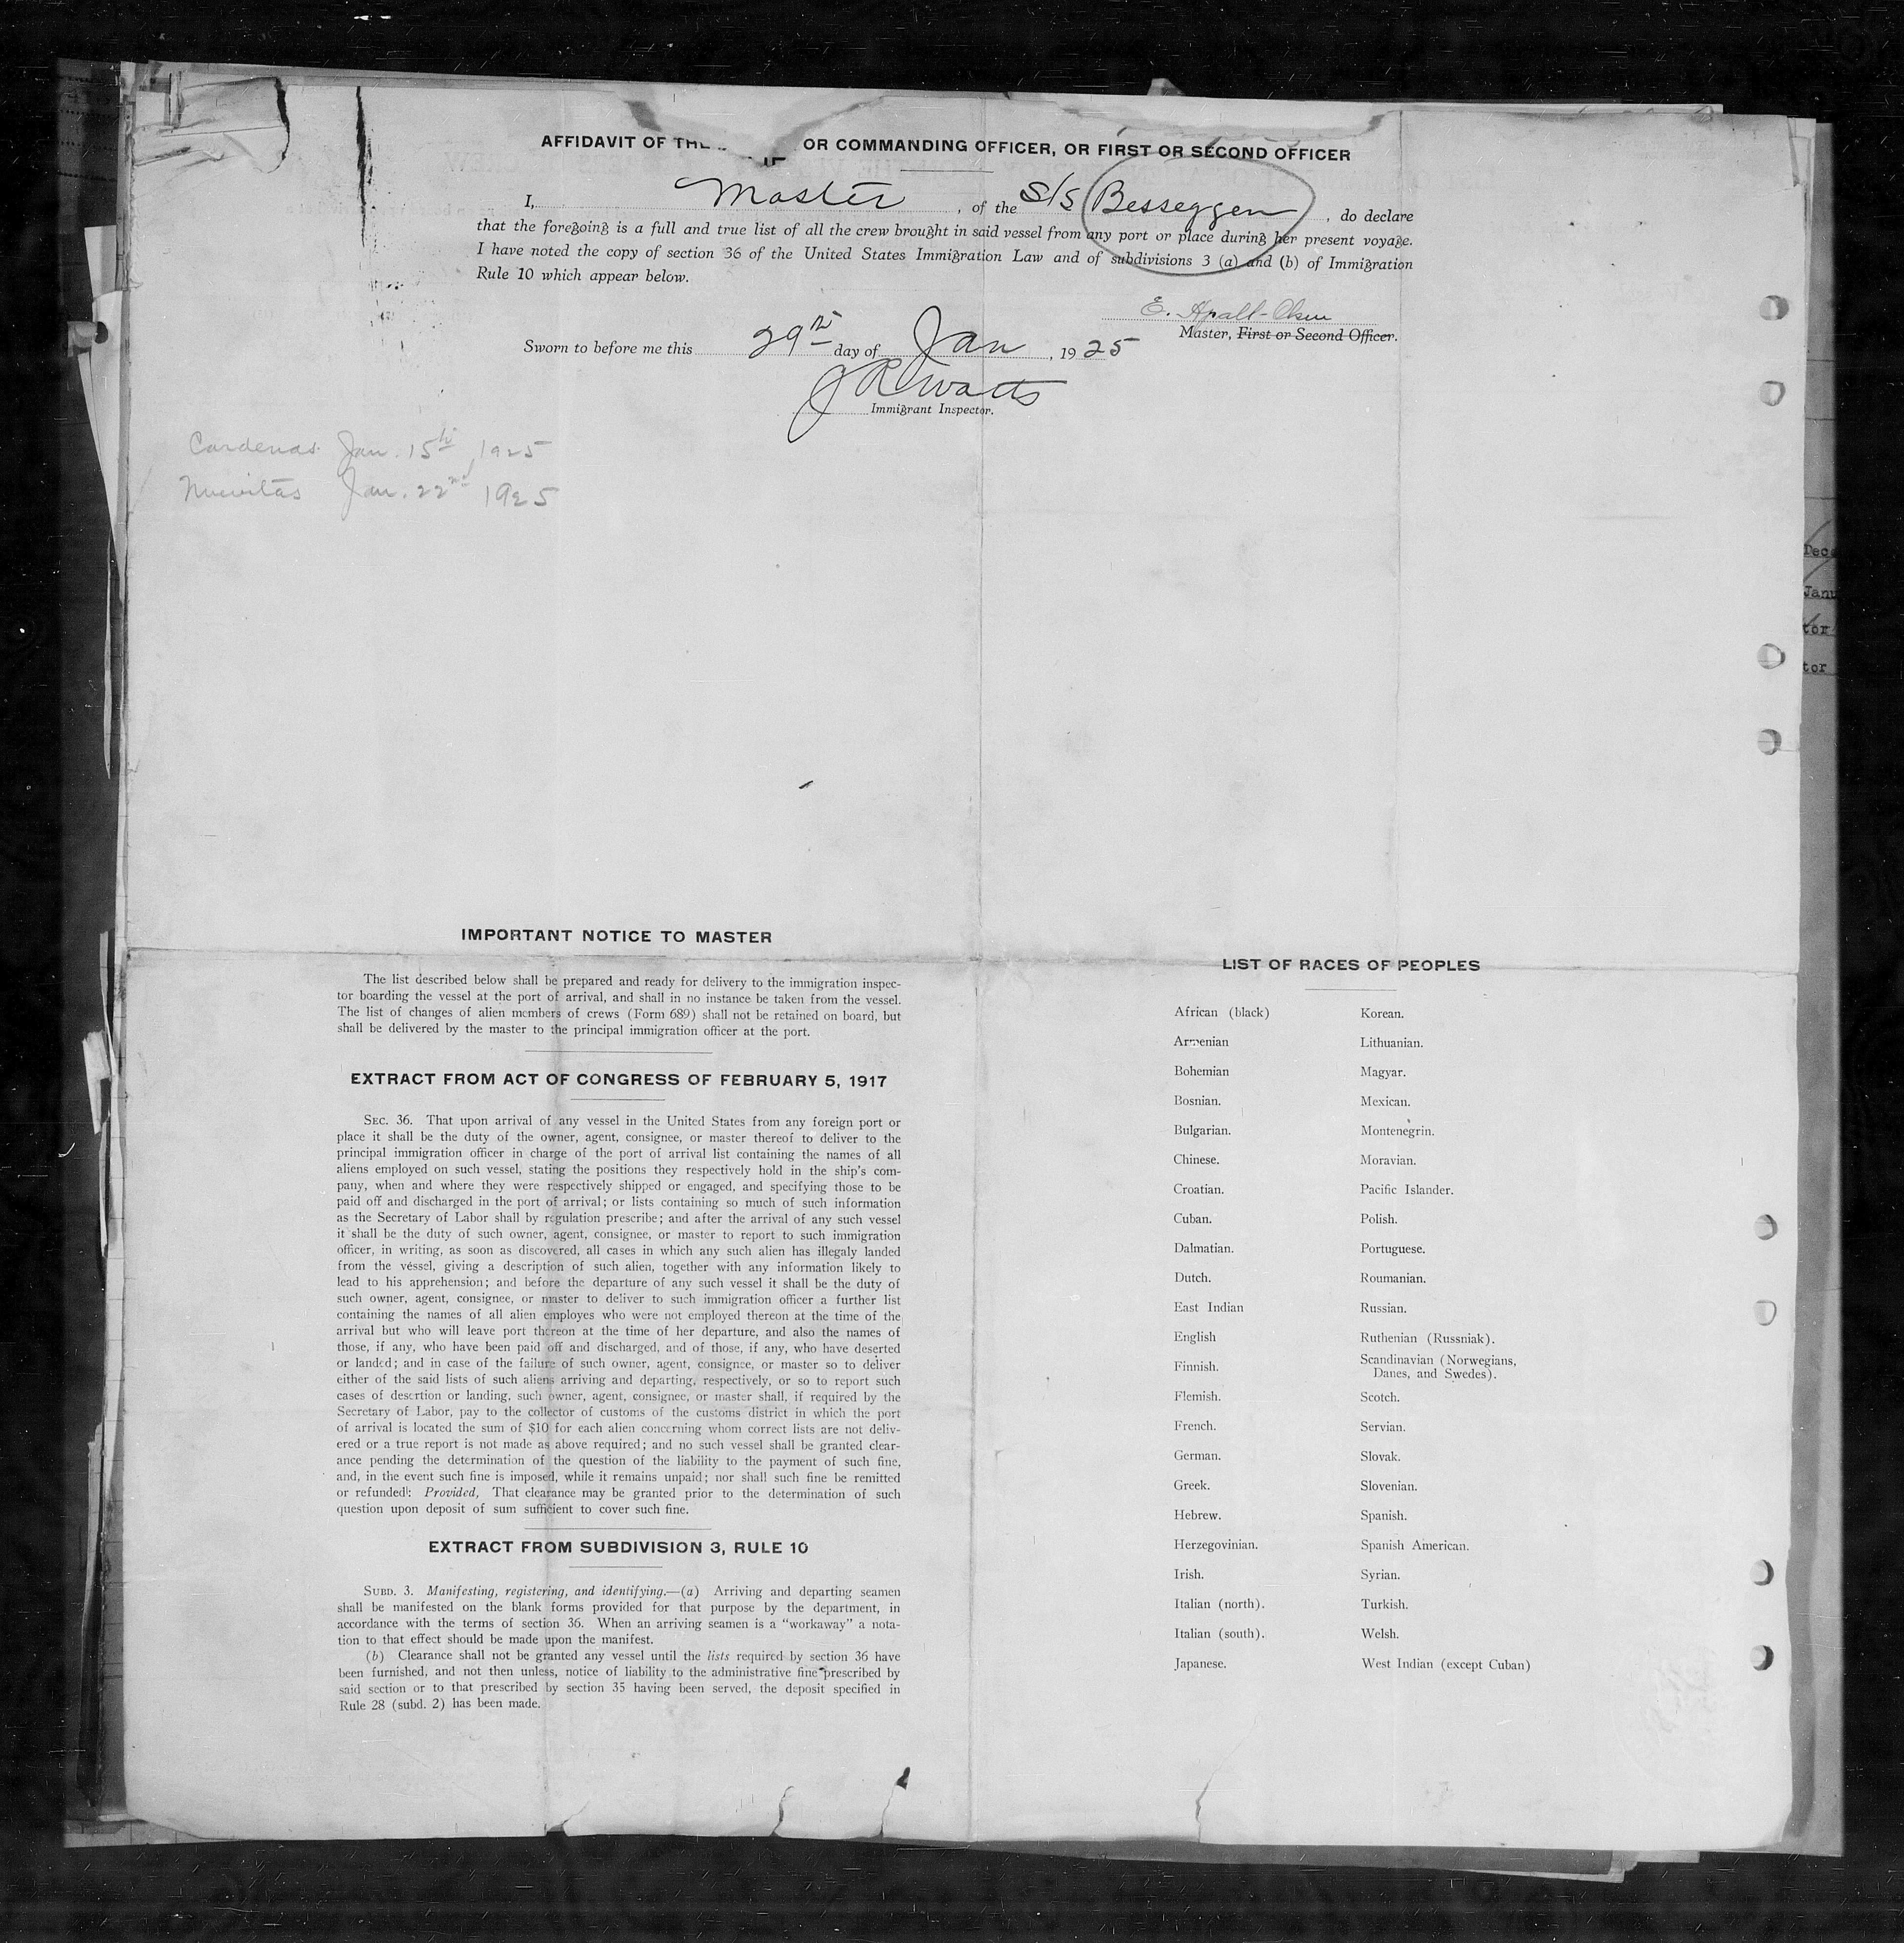 AFFIDAVIT OF THE OR COMMANDING OFFICER, OR FIRST OR SECOND OFFICER
I, Master, of the S/S Besseggen, do declare
that the foregoing is a full and true list of all the crew brought in said vessel from any port or place during her present voyage.
I have noted the copy of section 36 of the United States Immigration Law and of subdivisions 3 (a) and (b) of Immigration
Rule 10 which appear below.
Master, First or Second Officer.
Sworn to before me this 29th day of Jan, 1925
J R Watts
Immigrant Inspector.
Cardenas Jan. 15th, 1925
Nuevitas Jan. 22nd 1925
Dece
Janu
tor
tor
IMPORTANT NOTICE TO MASTER
The list described below shall be prepared and ready for delivery to the immigration inspec-
tor boarding the vessel at the port of arrival, and shall in no instance be taken from the vessel.
The list of changes of alien members of crews (Form 689) shall not be retained on board, but
shall be delivered by the master to the principal immigration officer at the port.
EXTRACT FROM ACT OF CONGRESS OF FEBRUARY 5, 1917
SEC. 36. That upon arrival of any vessel in the United States from any foreign port or
place it shall be the duty of the owner, agent, consignee, or master thereof to deliver to the
principal immigration officer in charge of the port of arrival list containing the names of all
aliens employed on such vessel, stating the positions they respectively hold in the ship's com-
pany, when and where they were respectively shipped or engaged, and specifying those to be
paid off and discharged in the port of arrival; or lists containing so much of such information
as the Secretary of Labor shall by regulation prescribe; and after the arrival of any such vessel
it shall be the duty of such owner, agent, consignee, or master to report to such immigration
officer, in writing, as soon as discovered, all cases in which any such alien has illegaly landed
from the vessel, giving a description of such alien, together with any information likely to
lead to his apprehension; and before the departure of any such vessel it shall be the duty of
such owner, agent, consignee, or master to deliver to such immigration officer a further list
containing the names of all alien employes who were not employed thereon at the time of the
arrival but who will leave port thereon at the time of her departure, and also the names of
those, if any, who have been paid off and discharged, and of those, if any, who have deserted
or landed; and in case of the failure of such owner, agent, consignee, or master so to deliver
either of the said lists of such aliens arriving and departing, respectively, or so to report such
cases of desertion or landing, such owner, agent, consignee, or master shall, if required by the
Secretary of Labor, pay to the collector of customs of the customs district in which the port
of arrival is located the sum of $10 for each alien concerning whom correct lists are not deliv-
ered or a true report is not made as above required; and no such vessel shall be granted clear-
ance pending the determination of the question of the liability to the payment of such fine,
and, in the event such fine is imposed, while it remains unpaid; nor shall such fine be remitted
or refunded: Provided, That clearance may be granted prior to the determination of such
question upon deposit of sum sufficient to cover such fine.
EXTRACT FROM SUBDIVISION 3, RULE 10
SUBD. 3. Manifesting, registering, and identifying.—(a) Arriving and departing seamen
shall be manifested on the blank forms provided for that purpose by the department, in
accordance with the terms of section 36. When an arriving seamen is a "workaway" a nota-
tion to that effect should be made upon the manifest.
(b) Clearance shall not be granted any vessel until the lists required by section 36 have
been furnished, and not then unless, notice of liability to the administrative fine prescribed by
said section or to that prescribed by section 35 having been served, the deposit specified in
Rule 28 (subd. 2) has been made.
LIST OF RACES OF PEOPLES
African (black)
Armenian
Bohemian
Bosnian.
Bulgarian.
Chinese.
Croatian.
Cuban.
Dalmatian.
Dutch.
East Indian
English
Finnish.
Flemish.
French.
German.
Greek.
Hebrew.
Herzegovinian.
Irish.
Italian (north).
Italian (south).
Japanese.
Korean.
Lithuanian.
Magyar.
Mexican.
Montenegrin.
Moravian.
Pacific Islander.
Polish.
Portuguese.
Roumanian.
Russian.
Ruthenian (Russniak).
Scandinavian (Norwegians,
Danes, and Swedes).
Scotch.
Servian.
Slovak.
Slovenian.
Spanish.
Spanish American.
Syrian.
Turkish.
Welsh.
West Indian (except Cuban)